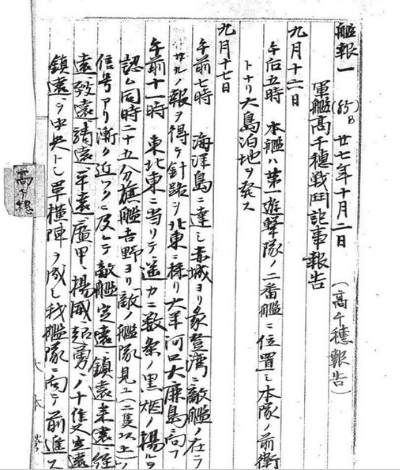 艦報一 (85)B 廿七年十月二日 (高千穂報告)
軍艦高千穂戦闘記事報告
九月十六日
午后五時 本艦ハ第一遊撃隊ノ二番艦ニ位置シ本隊ノ前衛
トナリ大島泊地ヲ発ス
九月十七日
午前七時 海洋島ニ達シ赤城ヨリ象登湾ニ敵艦ノ在ラ
サルノ報ヲ得テ針路ヲ北東ニ採リ大羊河口大鹿島ニ向フ
午前十一時 東北東ニ当リテ遥カニ数条ノ黒烟ノ揚ルヲ
認ム同時二十五分旗艦吉野ヨリ敵ノ艦隊見ユ(三隻以上)ノ
信号アリ漸ク近ツクニ及ヒテ敵艦定遠鎮遠来遠経
遠致遠靖遠平遠廣甲揚威超勇ノ十隻定遠
鎮遠ヲ中央トシ単横陣ヲ成シ我艦隊ニ向テ前進ス
高千穂